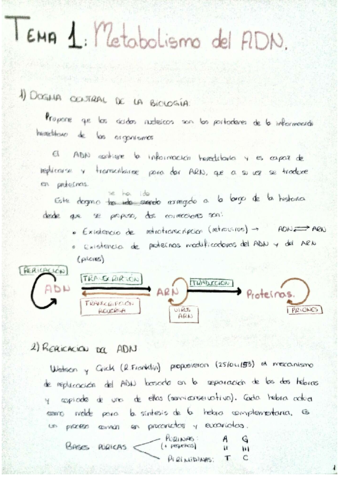 TEMA 1: Metabolismo del ADN.
1) DOGMA CENTRAL DE LA BIOLOGIA
Propone que los ácidos nucleicos son los portadores de la información
hereditaria de los organismos
El ADN contiene la información hereditaria y es capaz de
replicarse y transcribirse para dar ARN, que a su vez se traduce
en proteínas.
se ha ido
Este dogma ha ido siendo corregido a lo largo de la historia
desde que se propuso, dos correcciones son:
• Existencia de retrotranscripción (retrovirus) → ADN ⇌ ARN
• Existencia de proteínas modificadoras del ADN y del ARN
(priones)
REPLICACIÓN
TRANSCRIPCIÓN
TRADUCCIÓN
ADN
ARN
Proteínas.
TRANSCRIPCIÓN
INVERSA
VIRUS
ARN
PRIONES
2) REPLICACIÓN DEL ADN
Watson y Crick (R. Franklin) propusieron (25/04/1953) el mecanismo
de replicación del ADN basado en la separación de las dos hebras
y copiado de una de ellas (semiconservativo). Cada hebra actúa
como molde para la síntesis de la hebra complementaria. Es
un proceso común en procariotas y eucariotas.
BASES PÚRICAS
PURINAS A G
II III
PIRIMIDINAS: T C
1